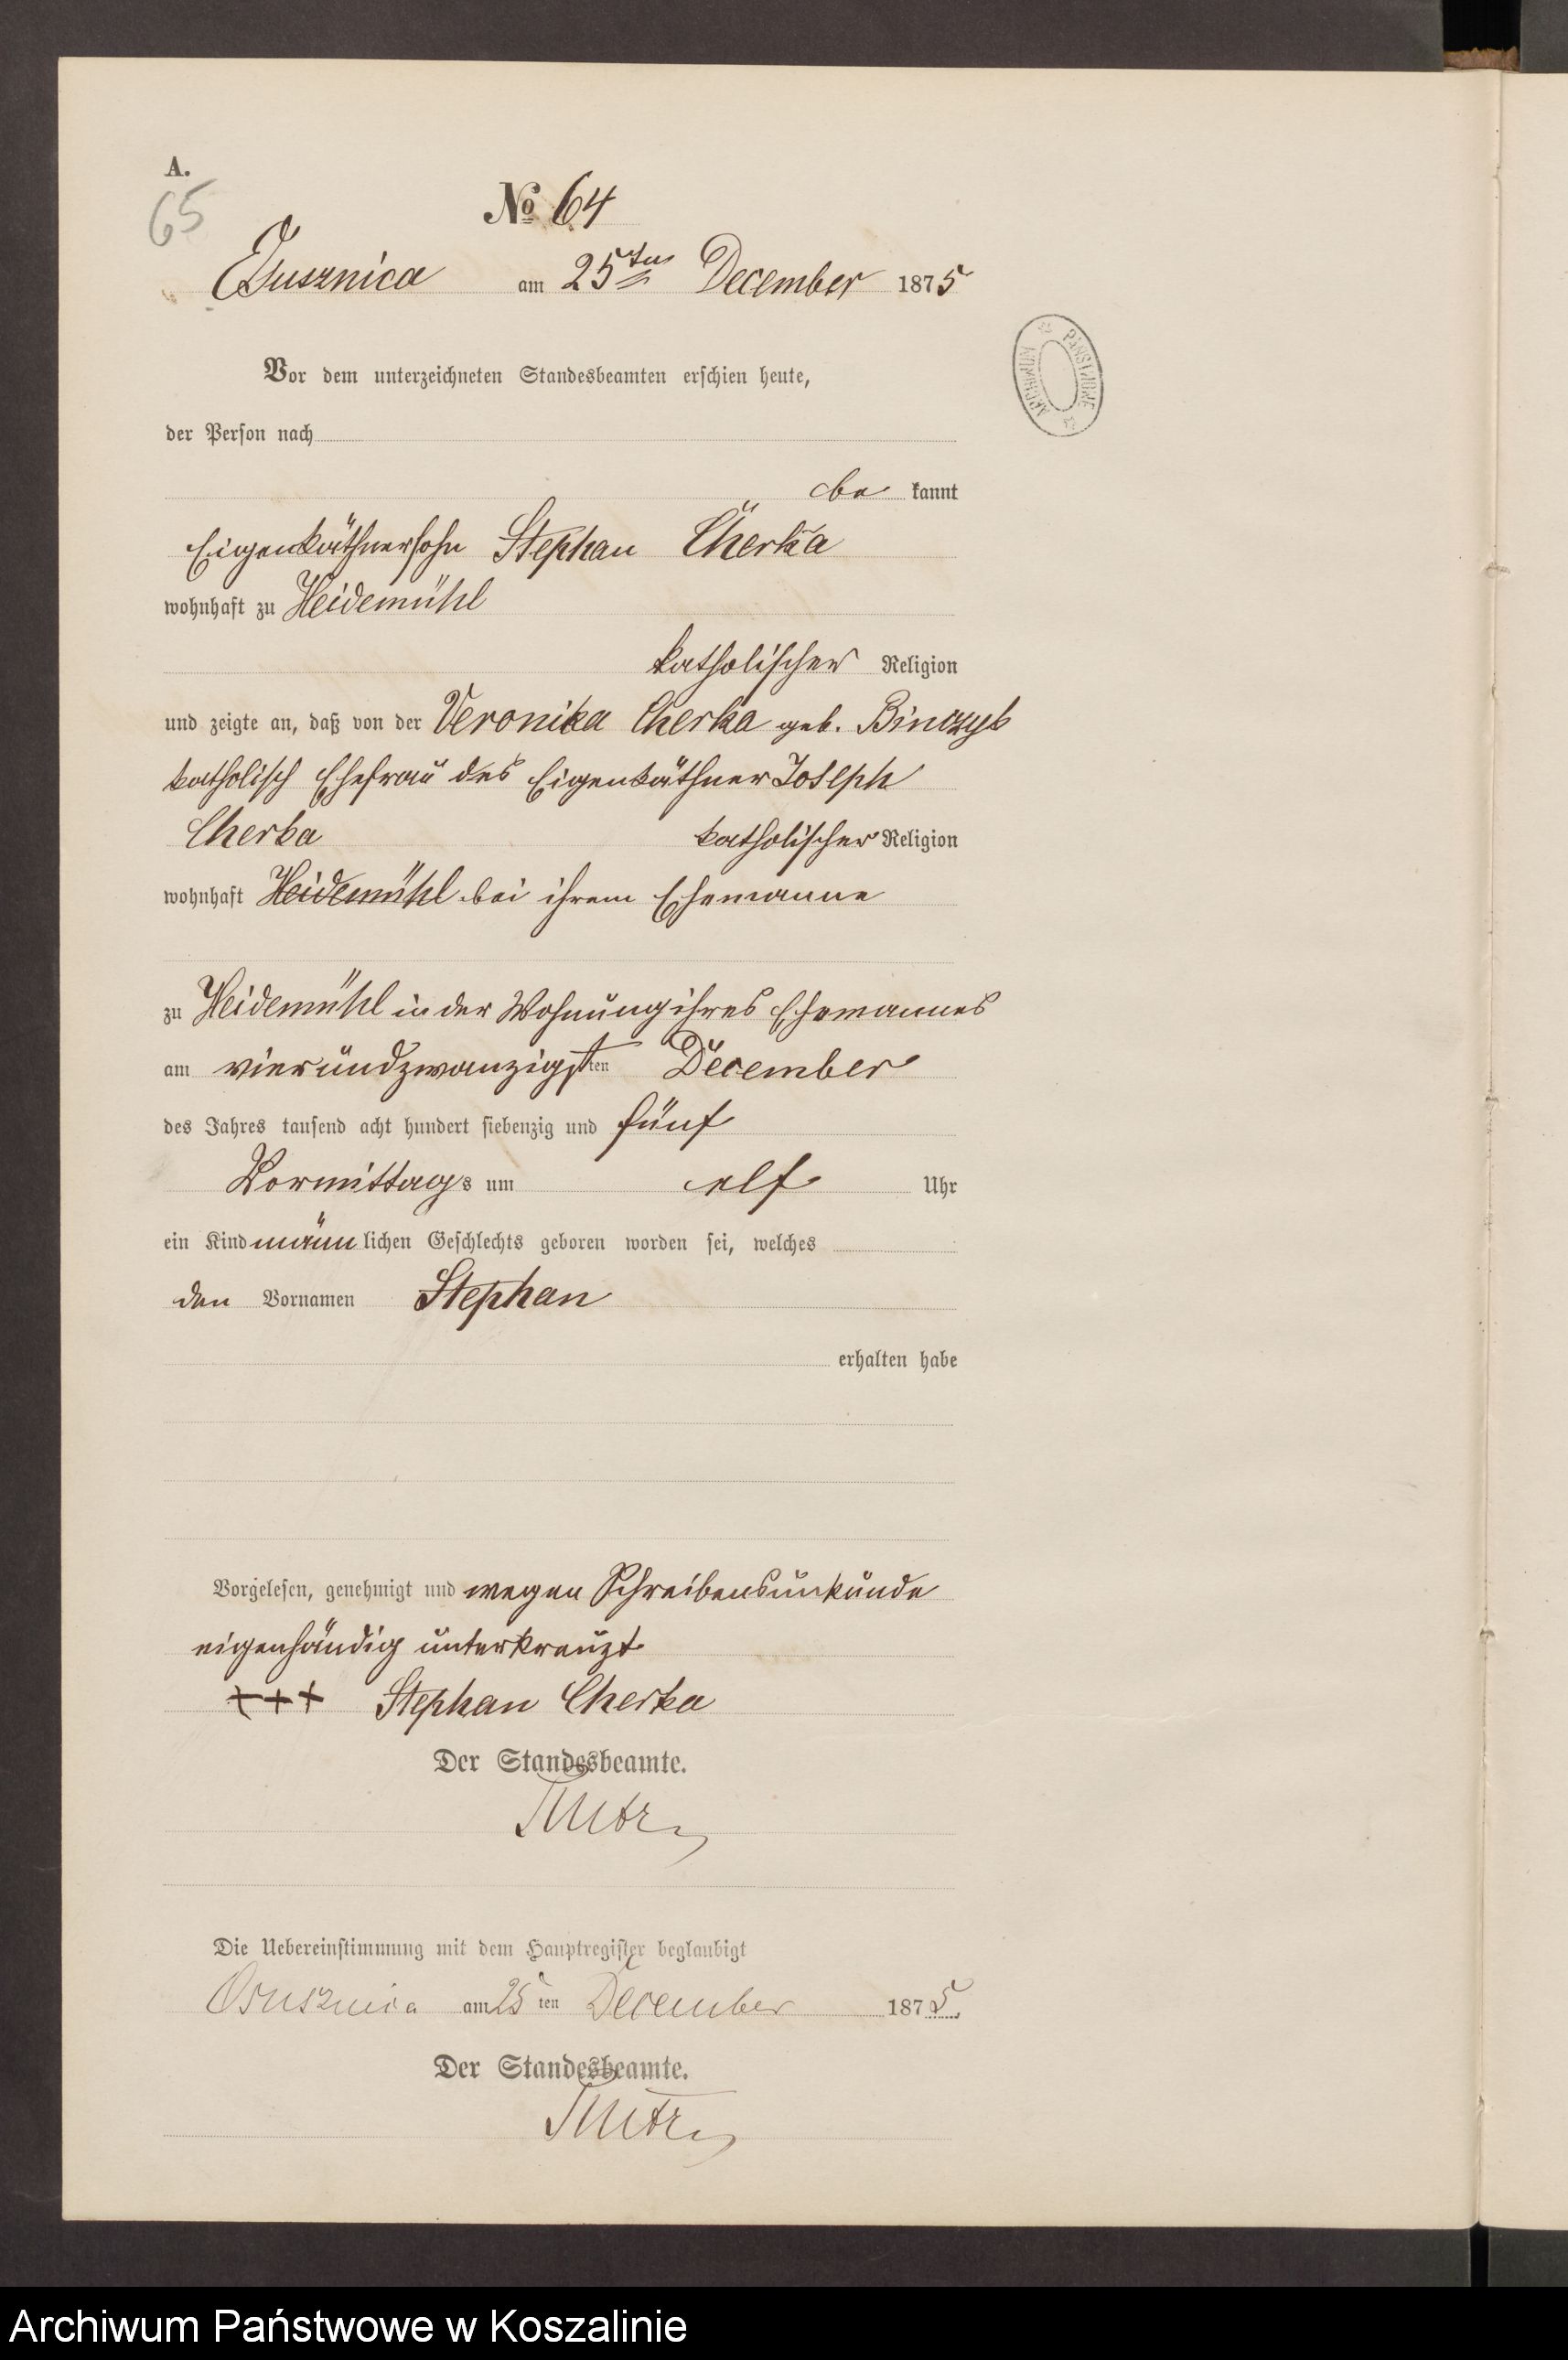 A.
65
№ 64
Osusznica am 25ten December 1875
Vor dem unterzeichneten Standesbeamten erschien heute,
der Person nach
be kannt
Eigenkäthnersohn Stephan Cherka
wohnhaft zu Heidemühl
katholischer Religion
und zeigte an, daß von der Veronika Cherka geb. Binczyk
katholisch Ehefrau des Eigenkäthner Joseph
Cherka katholischer Religion
wohnhaft Heidemühl bei ihrem Ehemanne
zu Heidemühl in der Wohnung ihres Ehemannes
am vierundzwanzigsten December
des Jahres tausend acht hundert siebenzig und fünf
Vormittags um elf Uhr
ein Kind männlichen Geschlechts geboren worden sei, welches
den Vornamen Stephan
erhalten habe
Vorgelesen, genehmigt und wegen Schreibensunkunde
eigenhändig unterkreuzt
+++ Stephan Cherka
Der Standesbeamte.
Die Uebereinstimmung mit dem Hauptregister beglaubigt
Osusznica am 25ten December 1875.
Der Standesbeamte.
ARCHIWUM PAŃSTWOWE
Archiwum Państwowe w Koszalinie